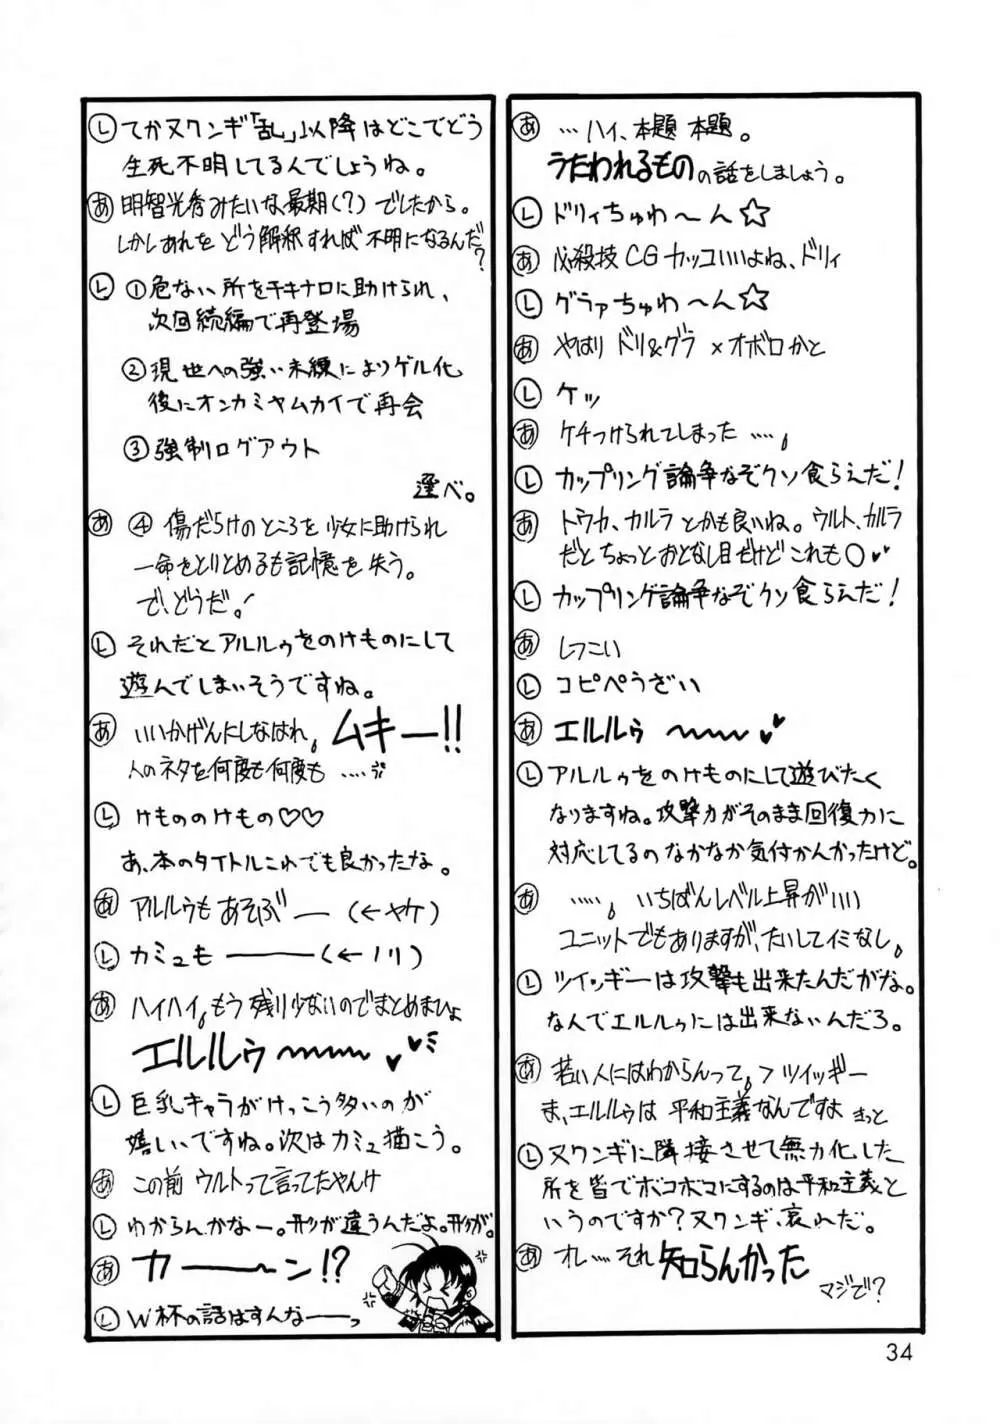 あ …ハイ、本題 本題。
うたわれるもの の話をしましょう。
L ドリィちゅわ〜ん☆
あ 必殺技CGカッコいいよね、ドリィ
L グラァちゅわ〜ん☆
あ やはり ドリ&グラ×オボロかと
L ケッ
あ ケチつけられてしまった ….。
L カップリング論争なぞクソ食らえだ!
あ トウカ、カルラとかも良いね。ウルト、カルラ
だとちょっとおとなし目だけどこれも〇♥♥
L カップリング論争なぞクソ食らえだ!
あ しつこい
L コピペうざい
あ エルルゥ 〜〜〜♥
L アルルゥをのけものにして遊びたく
なりますね。攻撃力がそのまま回復力に
対応してるのなかなか気付かんかったけど。
あ …..。いちばんレベル上昇がいい
ユニットでもありますが、たいしてイミなし。
L ツイッギーは攻撃も出来たんだがな。
なんでエルルゥには出来ないんだろ。
あ 若い人にはわからんって。>ツイッギー
ま、エルルゥは 平和主義なんですよ きっと
L ヌワンギに隣接させて無力化した
所を皆でボコボコにするのは平和主義と
いうのですか?ヌワンギ、哀れだ。
あ オレ….それ 知らんかった
マジで?
L てかヌワンギ「乱」以降はどこでどう
生死不明してるんでしょうね。
あ 明智光秀みたいな最期(?)でしたから。
しかしあれをどう解釈すれば不明になるんだ?
L ①危ない所をチキナロに助けられ、
次回続編で再登場
②現世への強い未練によりゲル化
後にオンカミヤムカイで再会
③強制ログアウト
選べ。
あ ④ 傷だらけのところを少女に助けられ
一命をとりとめるも記憶を失う。
で、どうだ!
L それだとアルルゥをのけものにして
遊んでしまいそうですね。
あ いいかげんにしなはれ。ムキー!!
人のネタを何度も何度も ….
L けもののけもの♡♡
あ、本のタイトルこれでも良かったな。
あ アルルゥもあそぶ ― (←ヤケ)
L カミュも ――― (←ノリ)
あ ハイハイ。もう残り少ないのでまとめまひょ
エルルゥ 〜〜〜 ♥♥
L 巨乳キャラがけっこう多いのが
嬉しいですね。次はカミュ描こう。
あ この前 ウルトって言ってたやんけ
L わからんかなー。形が違うんだよ。形が。
あ カ――〜ン!?
L W杯の話はすんな――っ
34